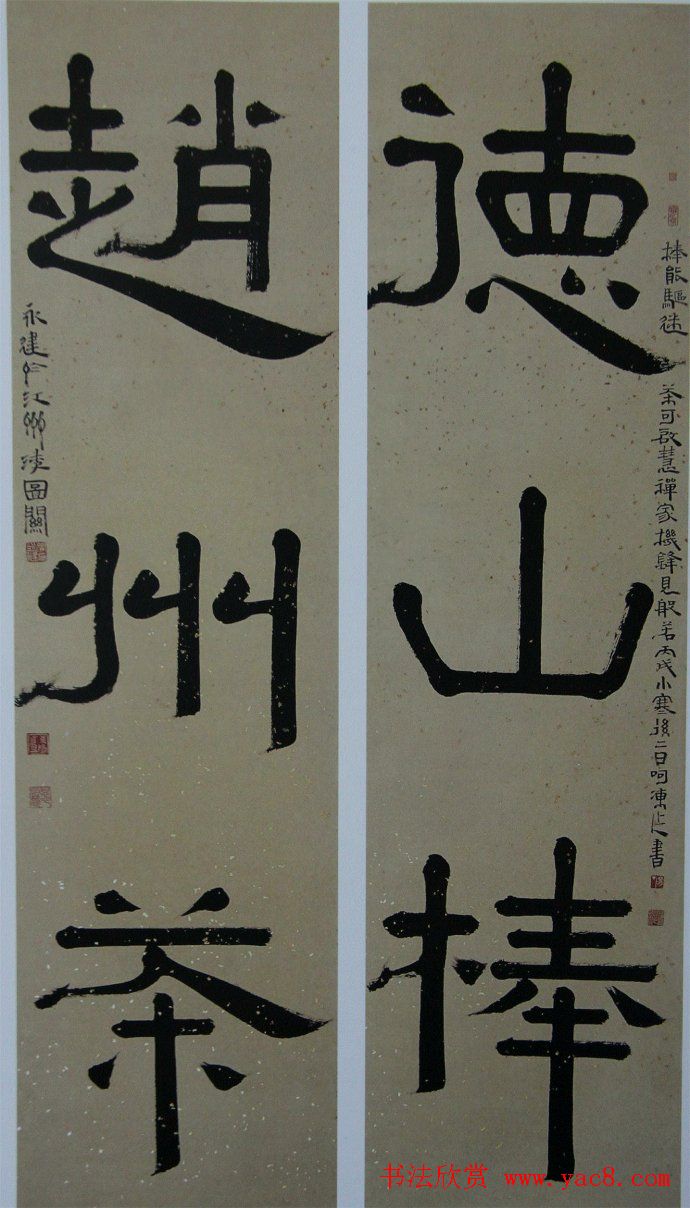 徳山棒
趙州茶
棒能驅迷
茶可啟慧禪家機鋒見般若丙戌小寒後二日呵凍書
永建於江
书法欣赏 www.yac8.com